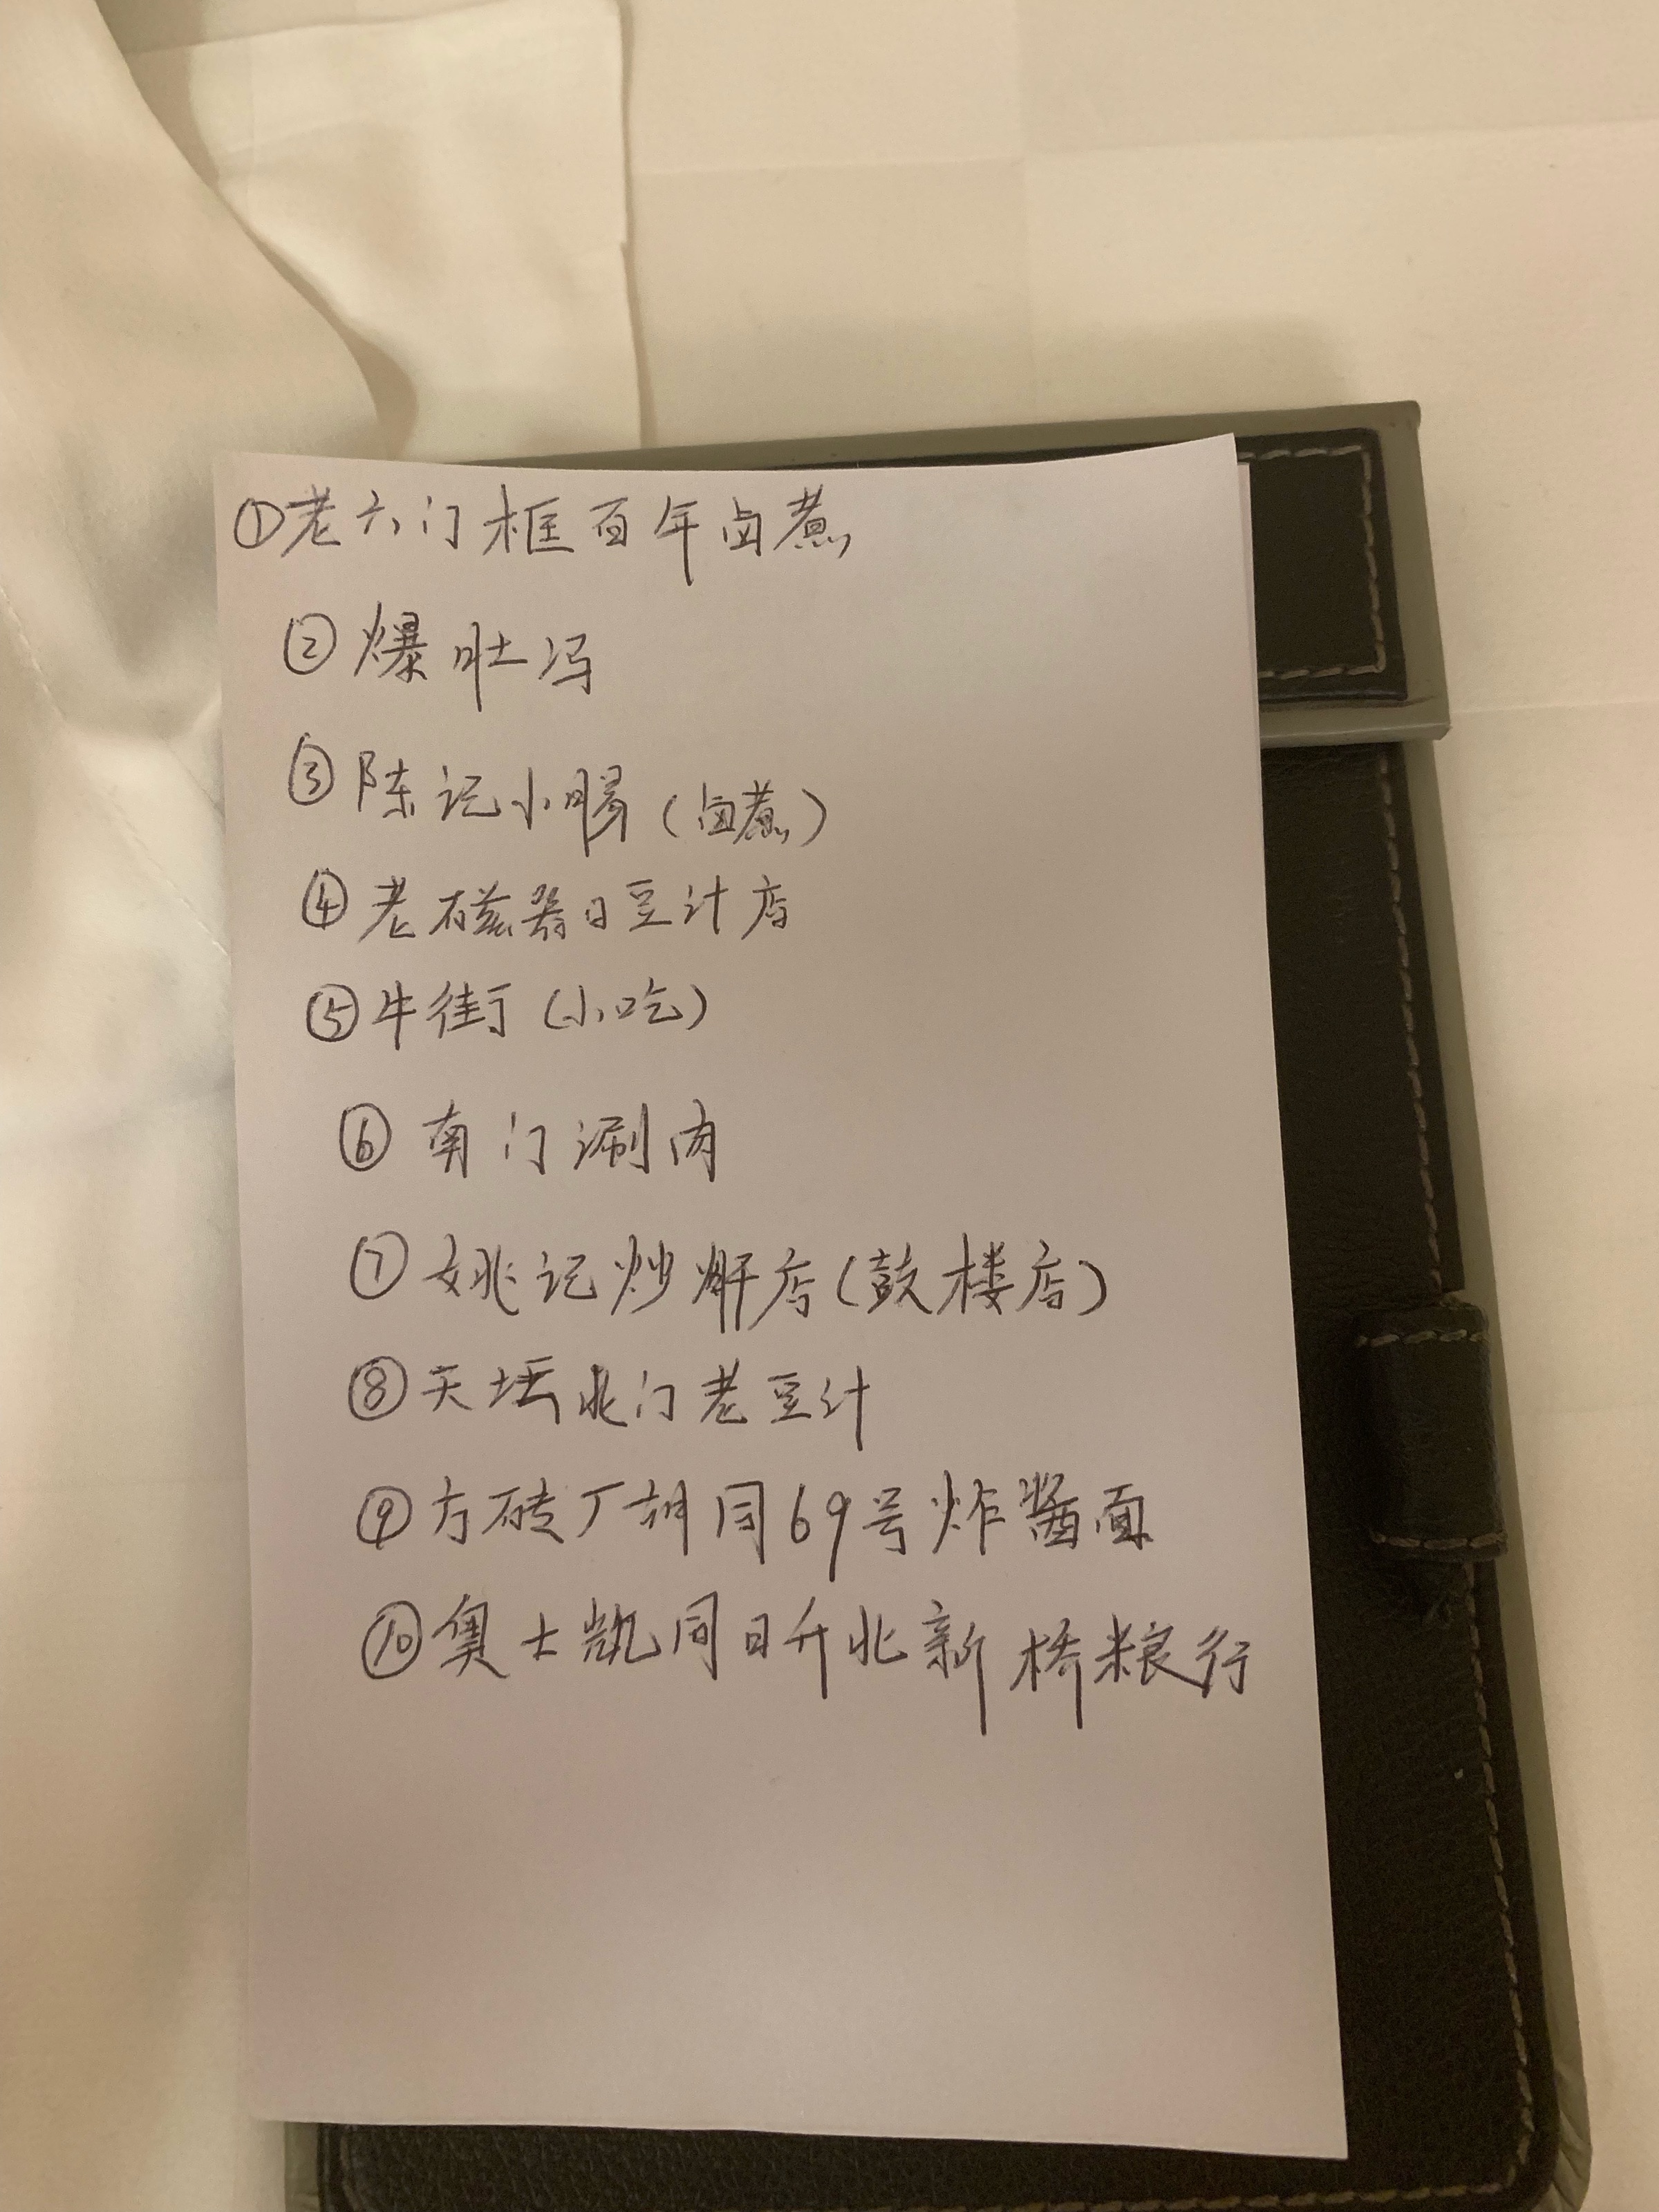 ①老六门框百年卤煮
②爆肚冯
③陈记小肠(卤煮)
④老磁器口豆汁店
⑤牛街(小吃)
⑥南门涮肉
⑦姚记炒肝店(鼓楼店)
⑧天坛北门老豆汁
⑨方砖厂胡同69号炸酱面
⑩奥士凯同日升北新桥粮行